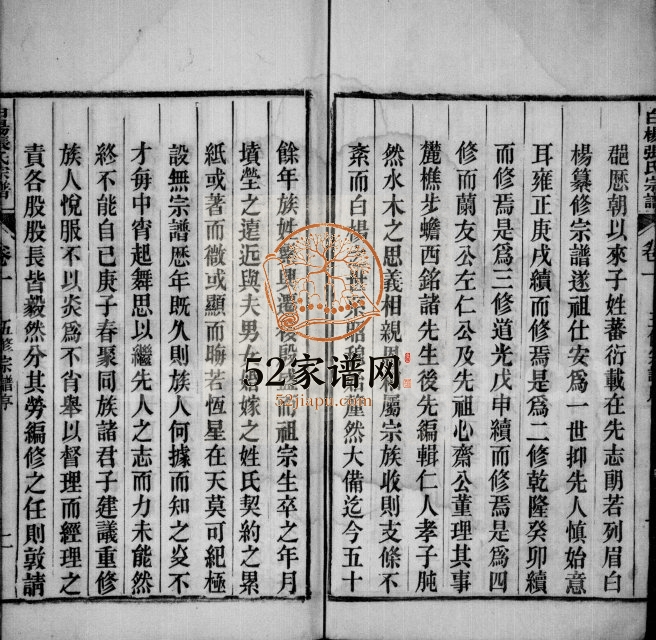 白楊張氏宗譜
卷一
郡歷朝以來子姓蕃衍載在先志朗若列眉白
楊纂修宗譜遂祖仕安爲一世抑先人慎始意
耳雍正庚戌續而修焉是爲二修乾隆癸卯續
而修焉是爲三修道光戊申續而修焉是爲四
修而蘭友公左仁公及先祖心齋公董理其事
麓樵步蟾西銘諸先生後先編輯仁人孝子肫
然水木之思義相親恩相屬宗族收則支條不
紊而白楊之世系昭穆釐然大備迄今五十
餘年族姓繁與遷徙殷盛而祖宗生卒之年月
墳塋之遠近與夫男女婚嫁之姓氏契約之累
紙或著而微或顯而晦若恆星在天莫可紀極
設無宗譜歷年既久則族人何據而知之炎不
才每中宵起舞思以繼先人之志而力未能然
終不能自已庚子春聚同族諸君子建議重修
族人悅服不以炎爲不肖舉以督理而經理之
責各股股長皆毅然分其勞編修之任則敦請
白楊張氏宗譜
卷一
五修宗譜序
二
52家谱网
52jiapu.com